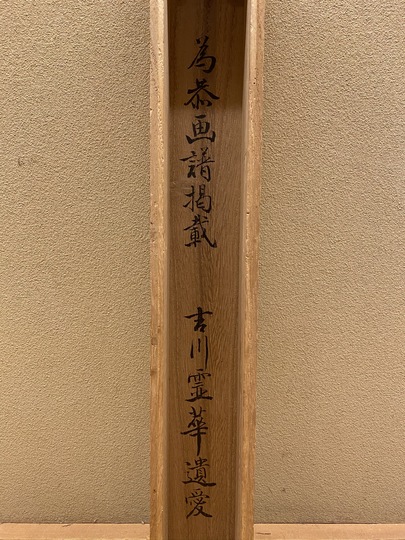 為恭画譜掲載　吉川霊華遺愛